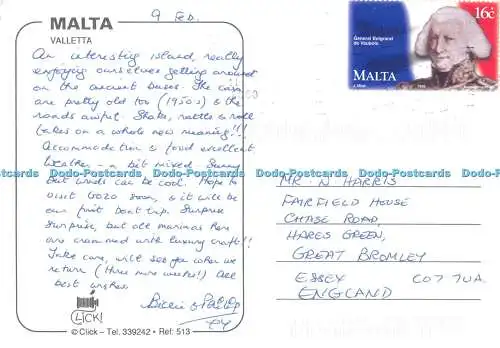 MALTA
VALLETTA
9 FEB.
An interesting island, really
enjoying ourselves getting around
on the ancient buses. The cars
are pretty old too (1950s) & the
roads awful. Shake, rattle & roll
takes on a whole new meaning!!!
Accommodation & food excellent
Weather - a bit mixed. Sunny
but winds can be cool. Hope to
visit GOZO soon, so it will be
our first boat trip. Surprise
Surprise, but all marinas here
are crammed with luxury craft!!
Take care, will see you when we
return (three more weeks!) All
best wishes,
CLICK!
© Click - Tel. 339242 • Ref: 513
General Belgrand
de Vaubois
16c
MALTA
MR. N HARRIS
FAIRFIELD HOUSE
CHASE ROAD,
HARES GREEN,
GREAT BROMLEY
ESSEX CO7 7UA.
ENGLAND
Dodo-Postcards Dodo-Postcards Dodo-Postcards Dodo-Postcards